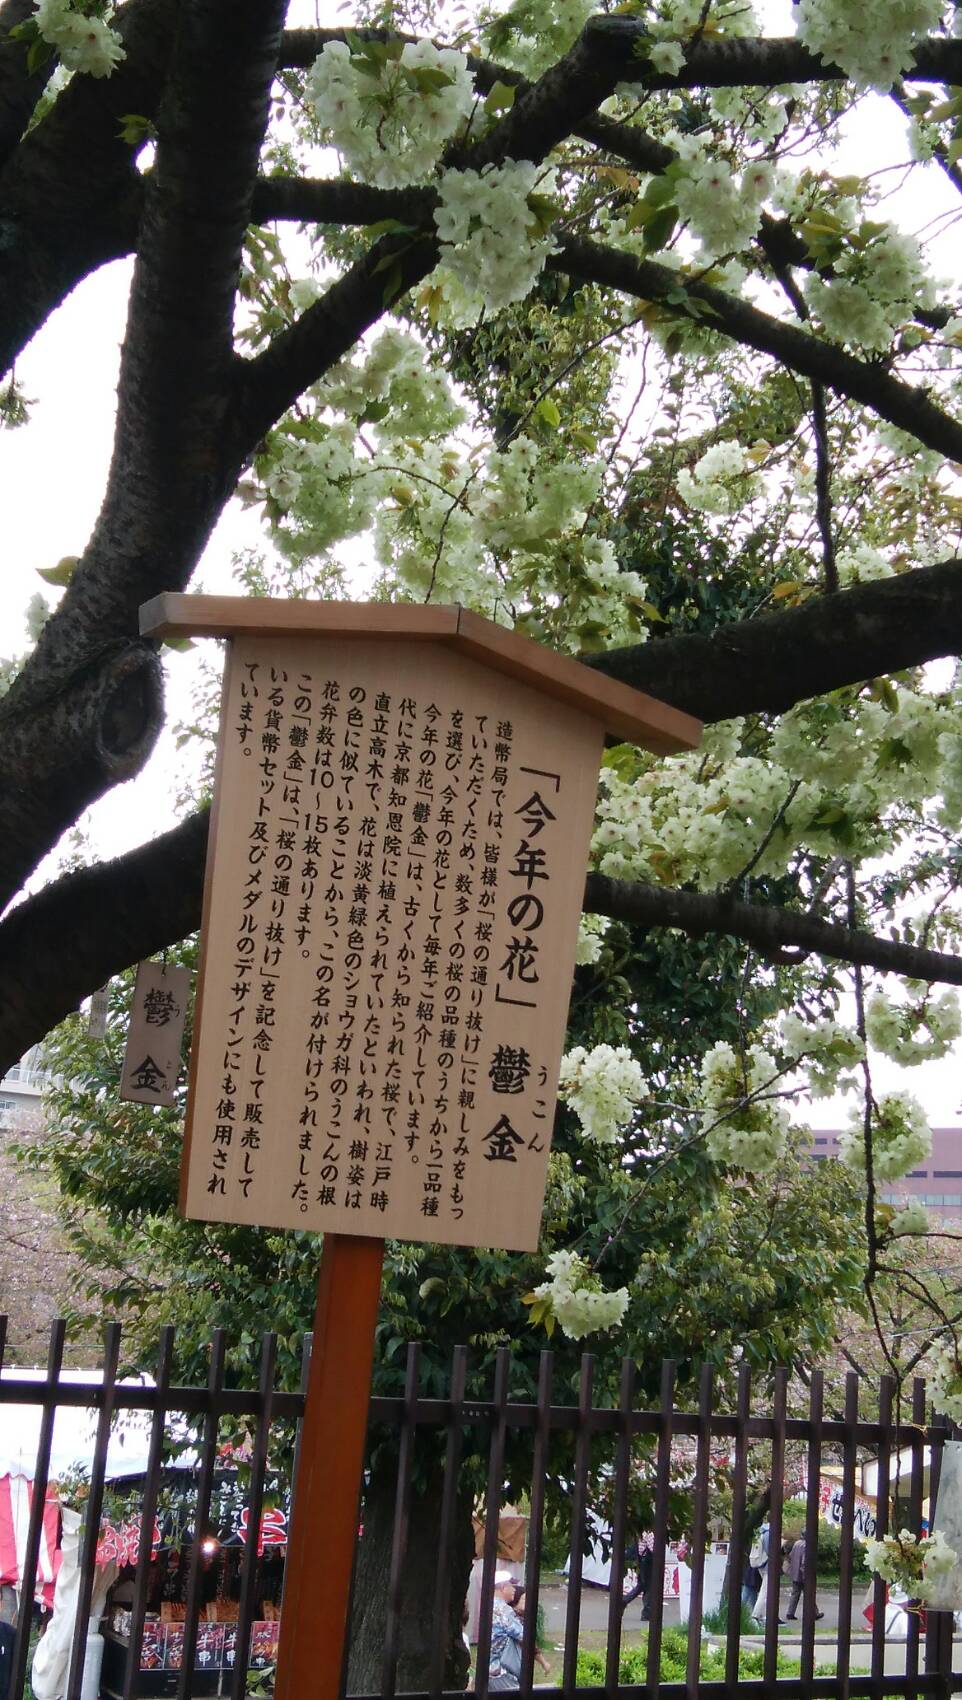 「今年の花」 鬱金
うこん
造幣局では、皆様が「桜の通り抜け」に親しみをもっ
ていただくため、数多くの桜の品種のうちから一品種
を選び、今年の花として毎年ご紹介しています。
今年の花「鬱金」は、古くから知られた桜で、江戸時
代に京都知恩院に植えられていたといわれ、樹姿は
直立高木で、花は淡黄緑色のショウガ科のうこんの根
の色に似ていることから、この名が付けられました。
花弁数は10〜15枚あります。
この「鬱金」は、「桜の通り抜け」を記念して販売して
いる貨幣セット及びメダルのデザインにも使用され
ています。
鬱金
牛串